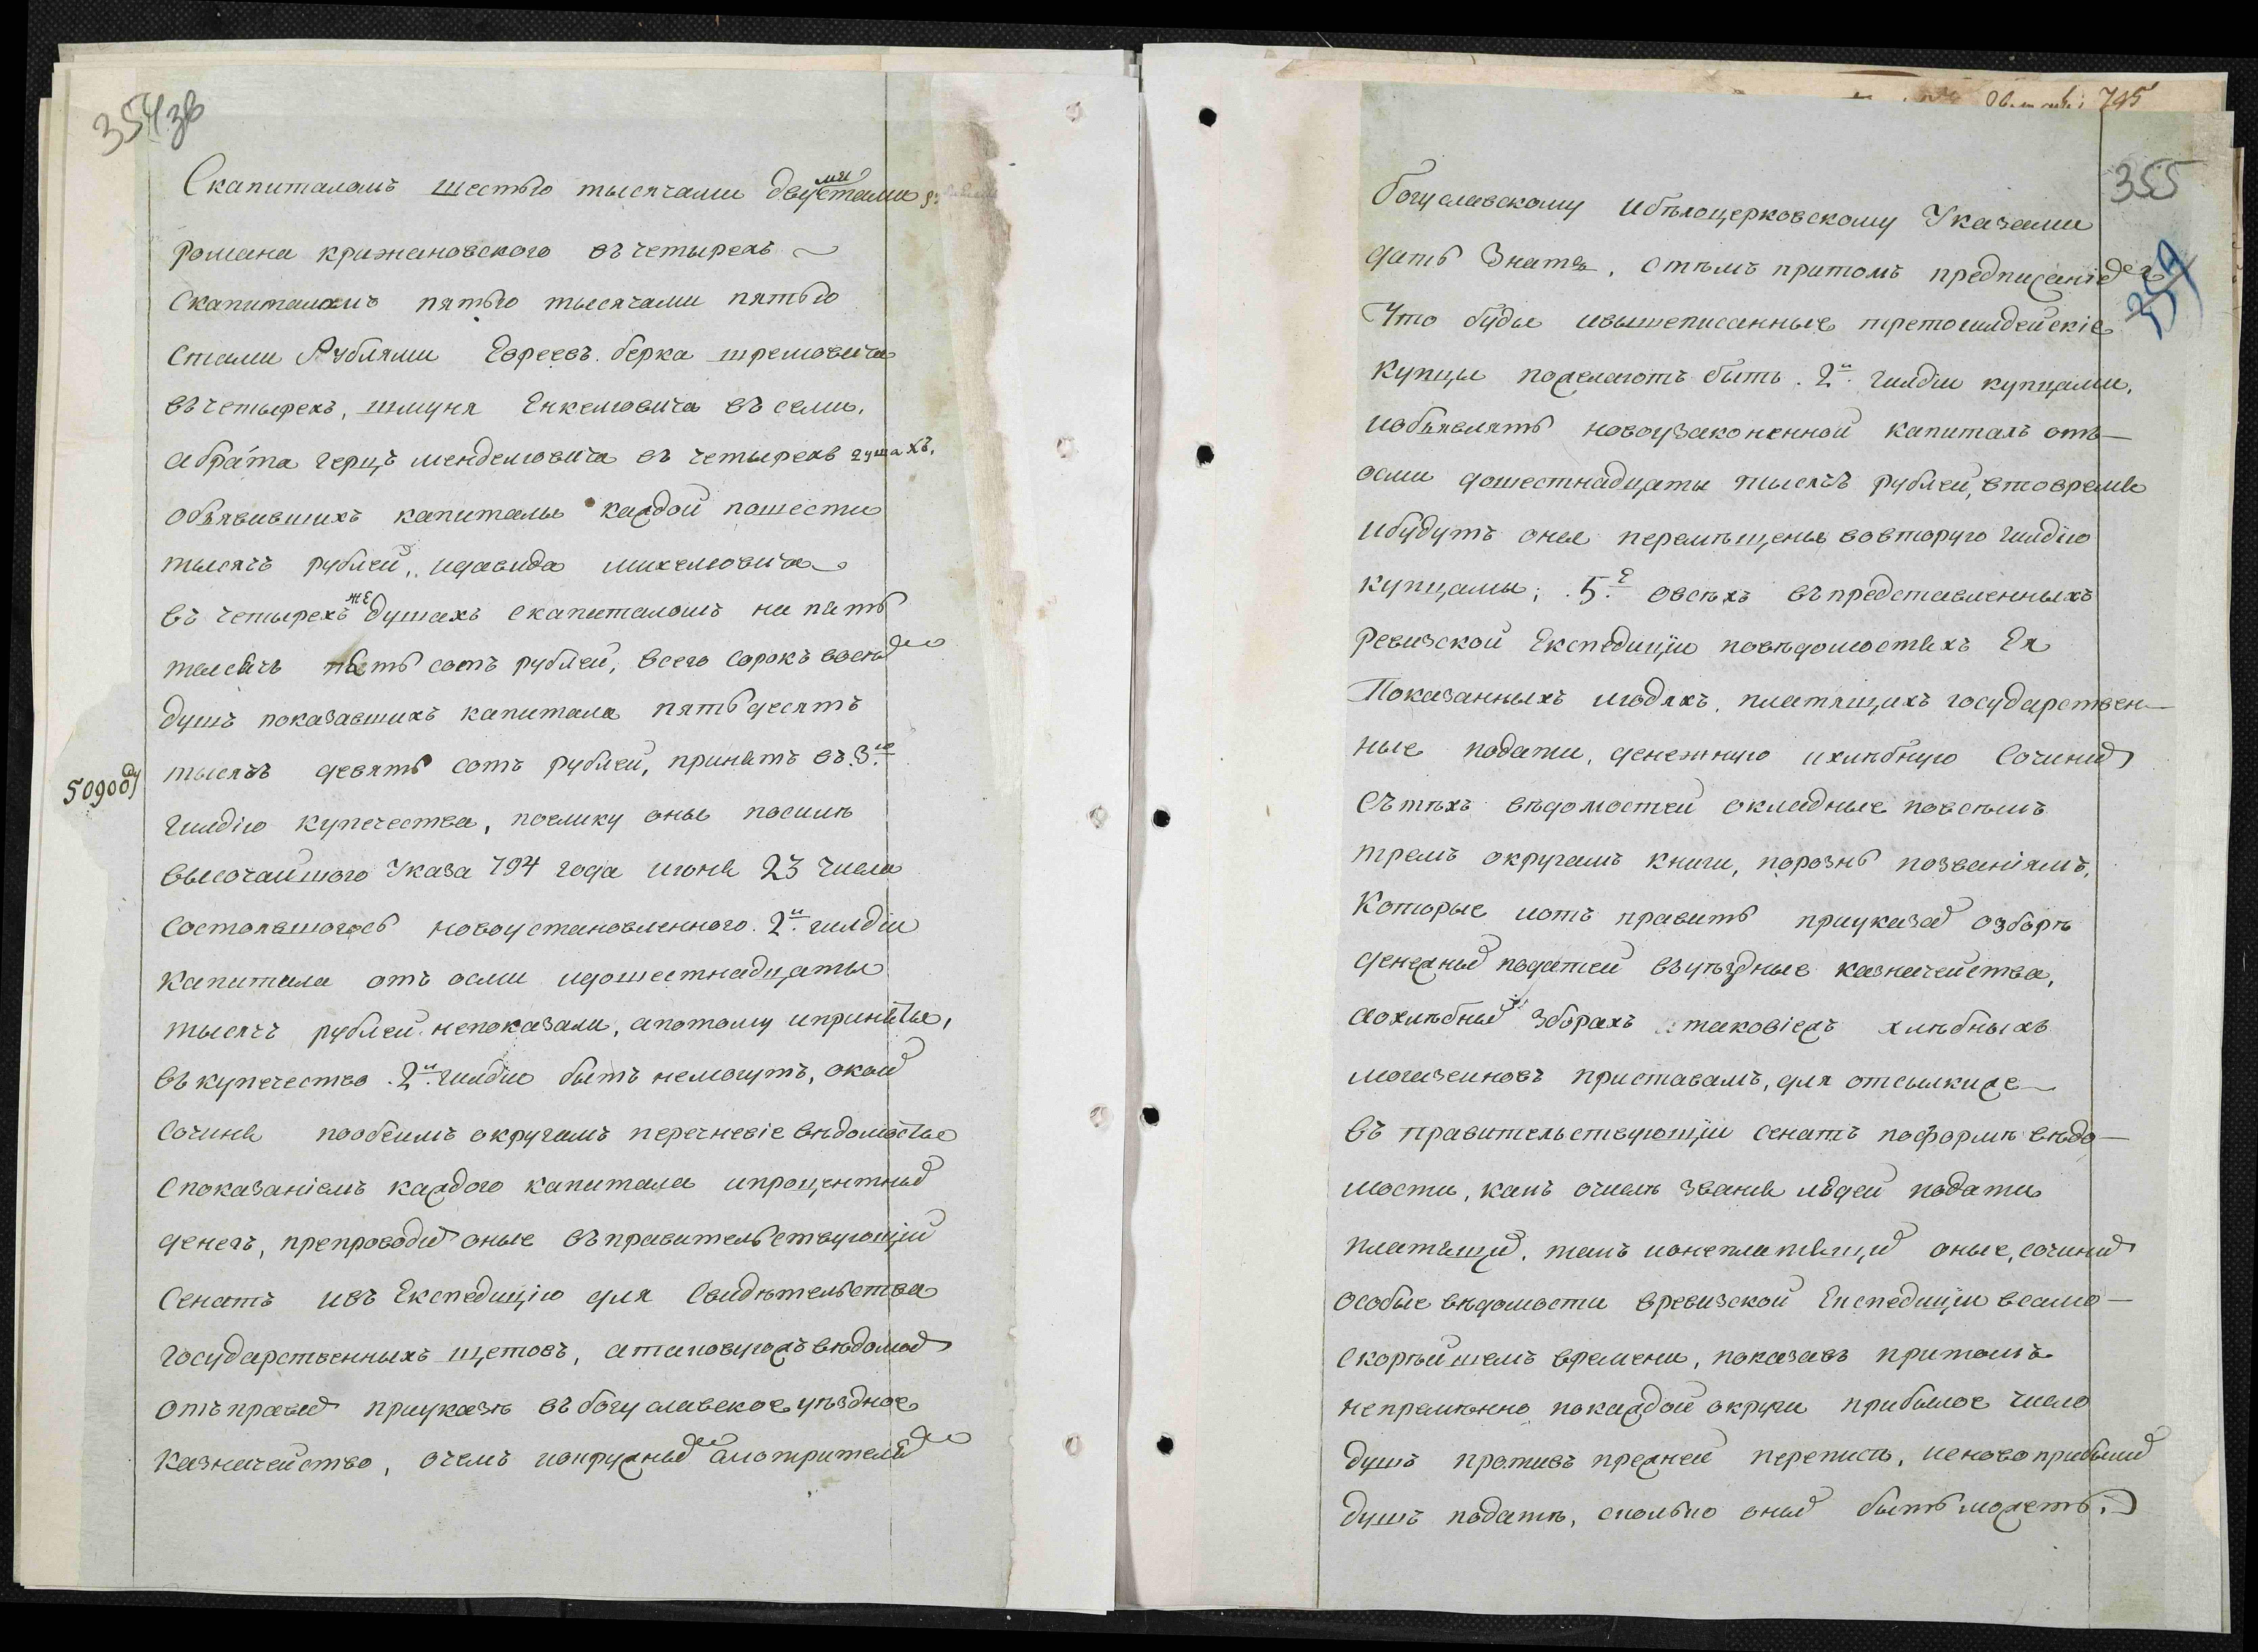 354 зв
Скапиталомъ шестью тысячами двумястами
романа крижановского въ четырехъ
скапиталомъ пятью тысячами пятью
стами Рублями Евреевъ берка шремовича
въ четырехъ, шмуня Енкелювича въ семи,
абрата герцъ менделювича въ четырехъ душахъ,
объявившихъ капиталы каждой пошести
тысячъ рублей, идавида михелювича
въ четырехъ же душахъ скапиталомъ на пять
тысячъ пять сотъ рублей, всего сорокъ восьмъ
душъ показавшихъ капитала пятьдесятъ
50900 ду
тысячъ девять сотъ рублей, принять въ 3ю
гилдію купечества, поелику оные посилѣ
высочайшого Указа 794 года июня 23 числа
состоявшогось новоустановленного 2й гилдіи
капитала отъ осми идошестнадцаты
тысячъ рублей непоказали, апотому иприняты,
въ купечество 2й гилдіи быть немогутъ, окой
сочиня пообеимъ округамъ перечневіе вѣдомосты
споказаніемъ каждого капитала ипроцентныхъ
денегъ, препроводить оные въ правительствующій
Сенатъ ивъ Експедицію для Свидѣтельства
государственныхъ щетовъ, атаковуюжъ вѣдомость
отъправить приуказѣ въ богуславское уѣздное
казначейство, очемъ иокружнымъ смотрителямъ
795
355
359
богуславскому ибѣлоцерковскому Указами
дать Знать, стѣмъ притомъ предписаніемъ
Что буде ивышеписанные третогилдейскіе
купцы пожелаютъ быть 2й гилдіи купцами,
иобъявлять новоузаконенной капиталъ отъ
осми дошестнадцаты тысячъ рублей, втовремя
ибудутъ оные перемѣщены вовторую гилдію
купцами; 5е овсѣхъ въ представленныхъ
Ревизской Експедиціи повѣдомостяхъ Ея
Показанныхъ людяхъ, платящихъ государствен-
ные подати, денежную ихлѣбную Сочинить
Съ тѣхъ вѣдомостей окладные повсѣмъ
тремъ округамъ книги, порознь позваніямъ,
Которые иотъ править приуказахъ озборѣ
денежныхъ податей въуѣздные казначейства,
аохлѣбныхъ зборахъ таковіежъ хлѣбныхъ
могазеиновъ приставамъ, для отсылкиже
въ правительствующіи сенатъ поформѣ вѣдо-
мости, какъ очислѣ званія людей подати
платящихъ, такъ ионеплатящихъ оные, сочинить
особые вѣдомости времизской Експедиціи всамо-
скорѣйшемъ времени, показавъ притомъ
непремѣнно покаждой округи прибылое число
душъ противъ прежней переписи, исновоприбылихъ
душъ подати, сколько оныхъ быть можетъ;